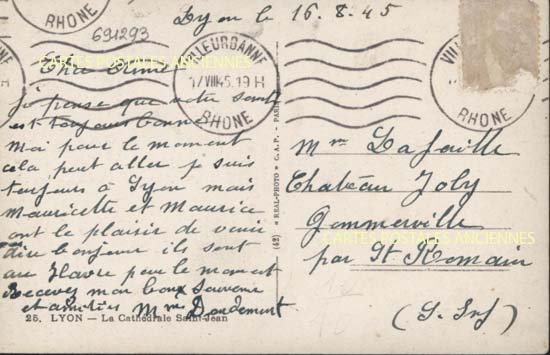 Lyon le 16.8.45
691293
RHONE
VILLEURBANNE
17 VIII 45. 19 H
RHONE
VIL
RHONE
CARTES POSTALES ANCIENNES
Chère Amie
je pense que votre santé
est toujours bonne
Moi pour le moment
cela peut aller je suis
toujours à Lyon mais
Mauricette et Maurice
ont le plaisir de venir
dire bonjour ils sont
au Havre pour le moment
Recevez mon bon souvenir
et amitiés Mme Doudement
25. LYON - La Cathédrale Saint-Jean
(42) * REAL-PHOTO * C. A. P. - PARIS
Mme Lafaille
Chateau Joly
Gommerville
CARTES POSTALES ANCIENNES
par St-Romain
(S. Inf)